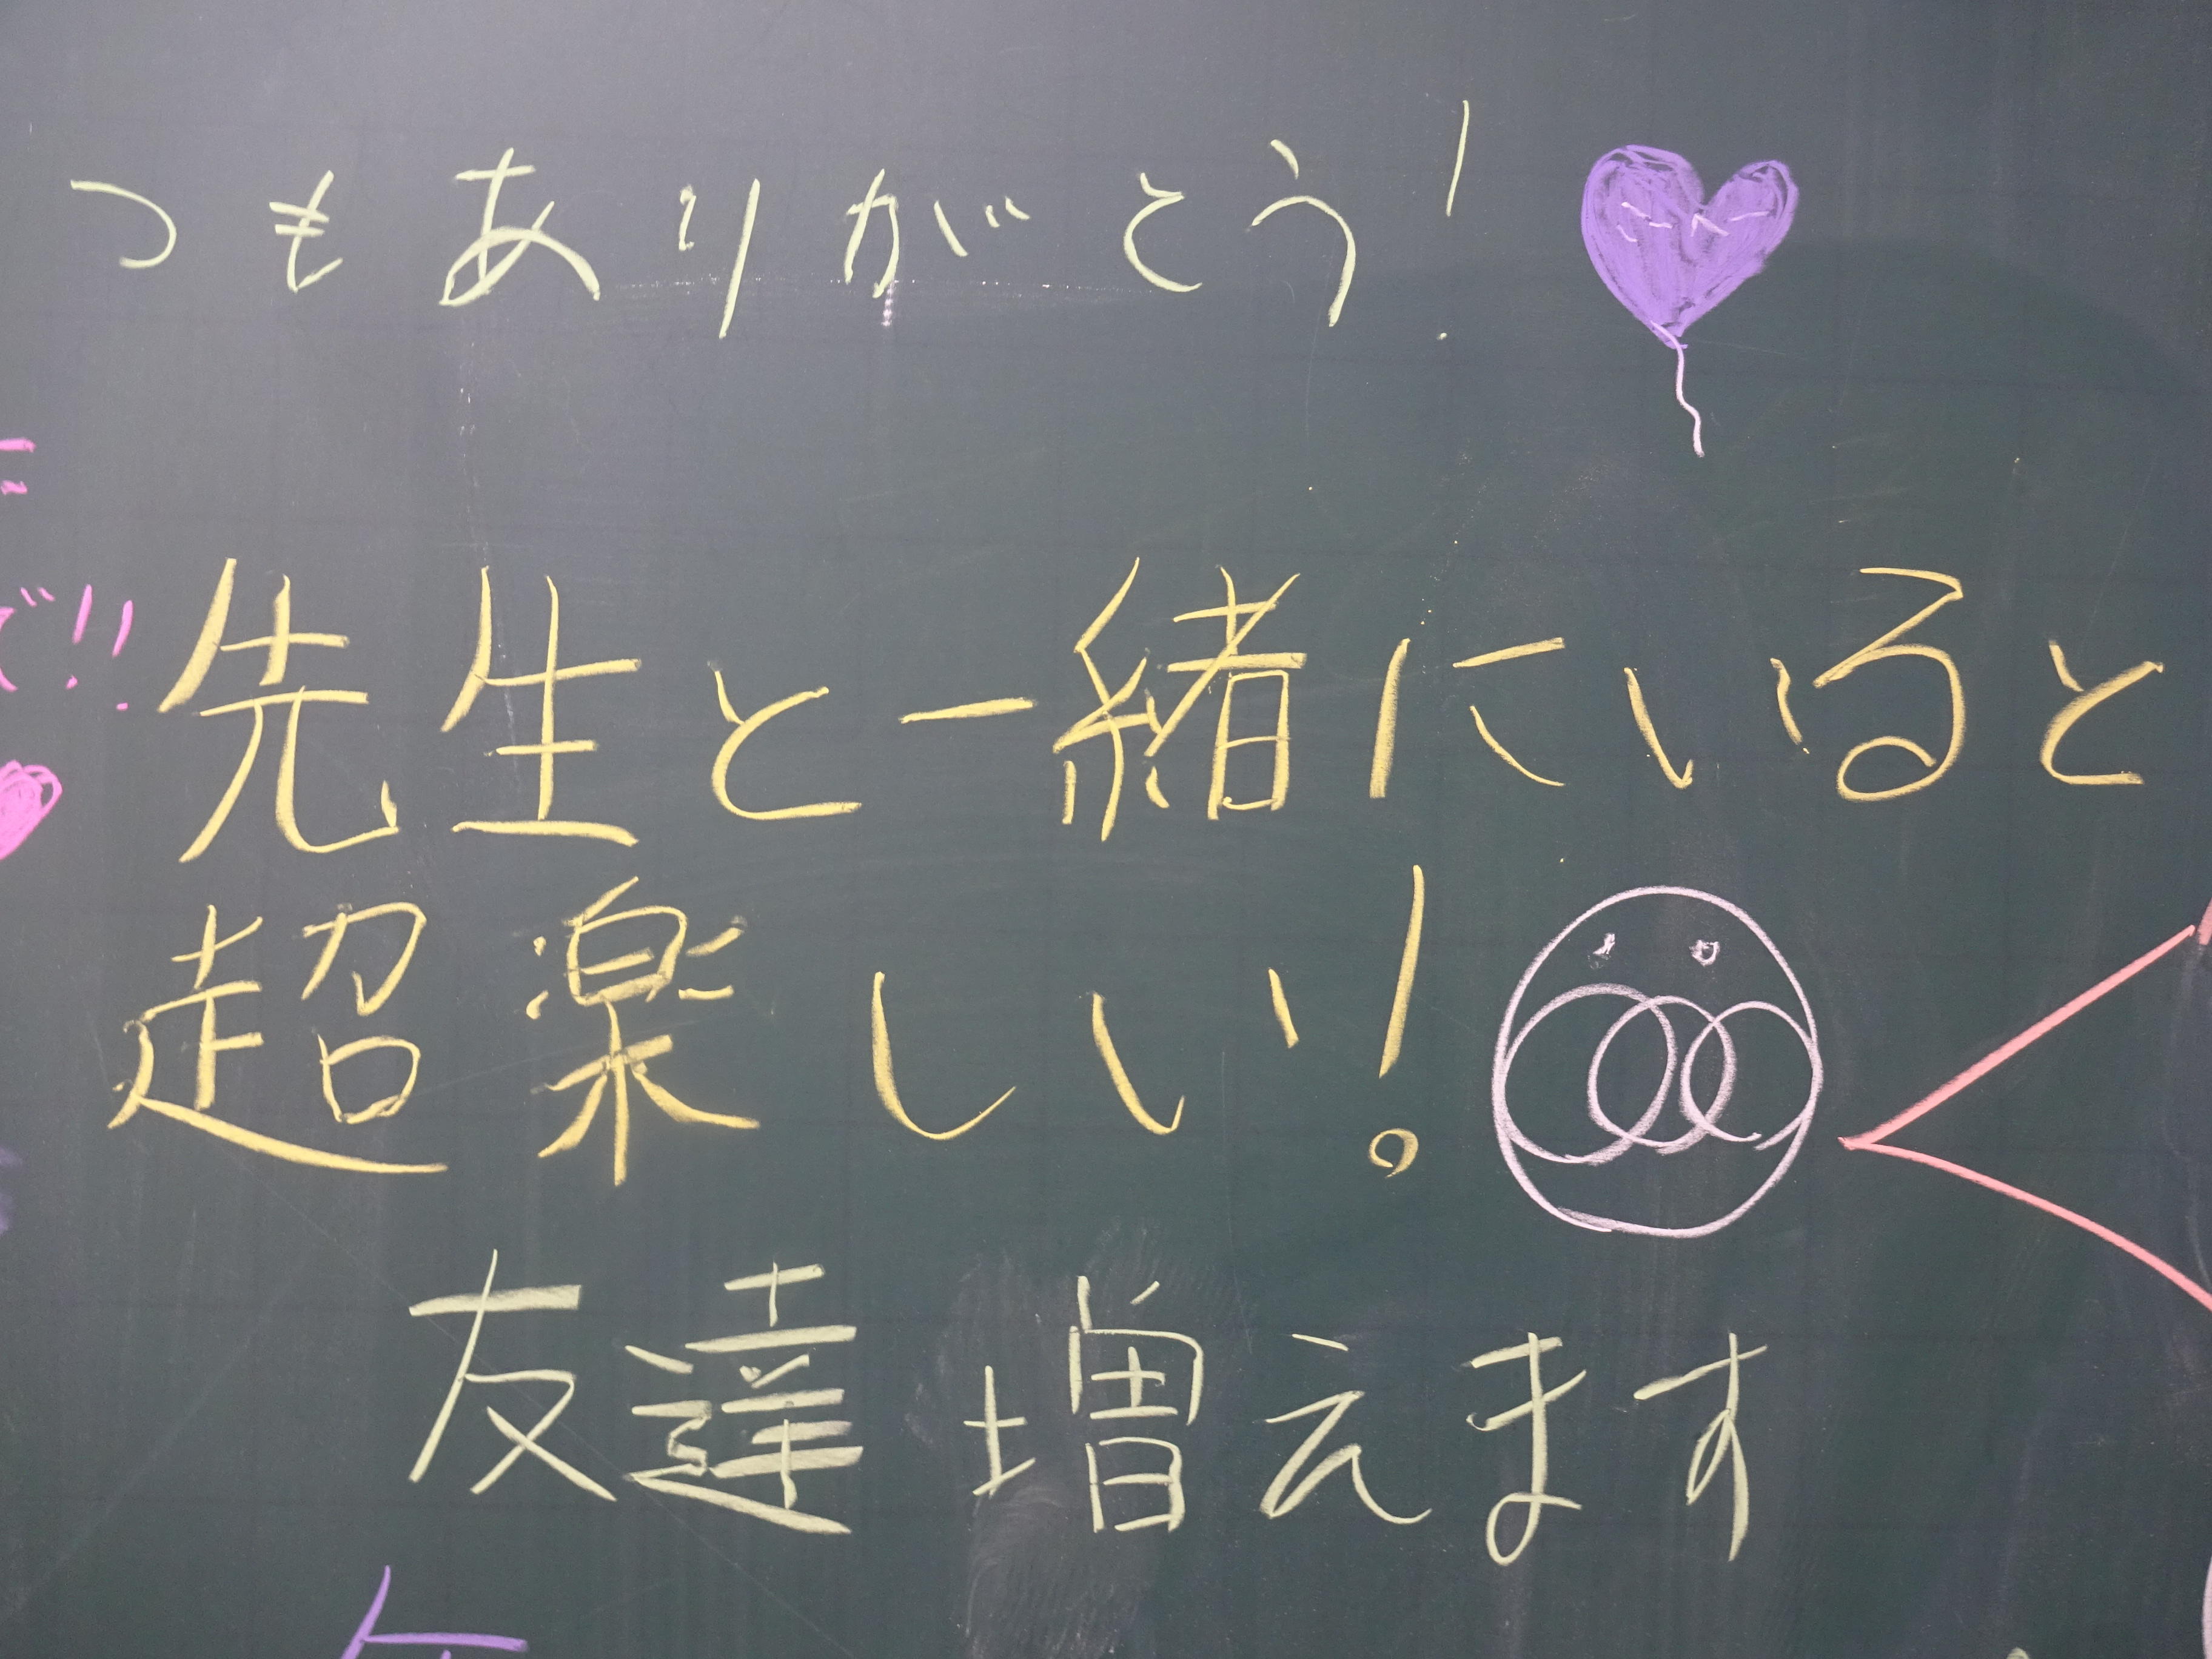 つもありがとう!
で!!
先生と一緒にいると
超楽しい!
友達増えます